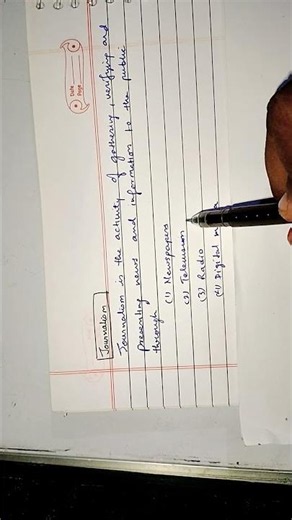 Date
Page
Journalism
Journalism is the activity of gathering, verifying and
presenting news and information to the public
through
(1) Newspapers
(2) Television
(3) Radio
(4) Digital